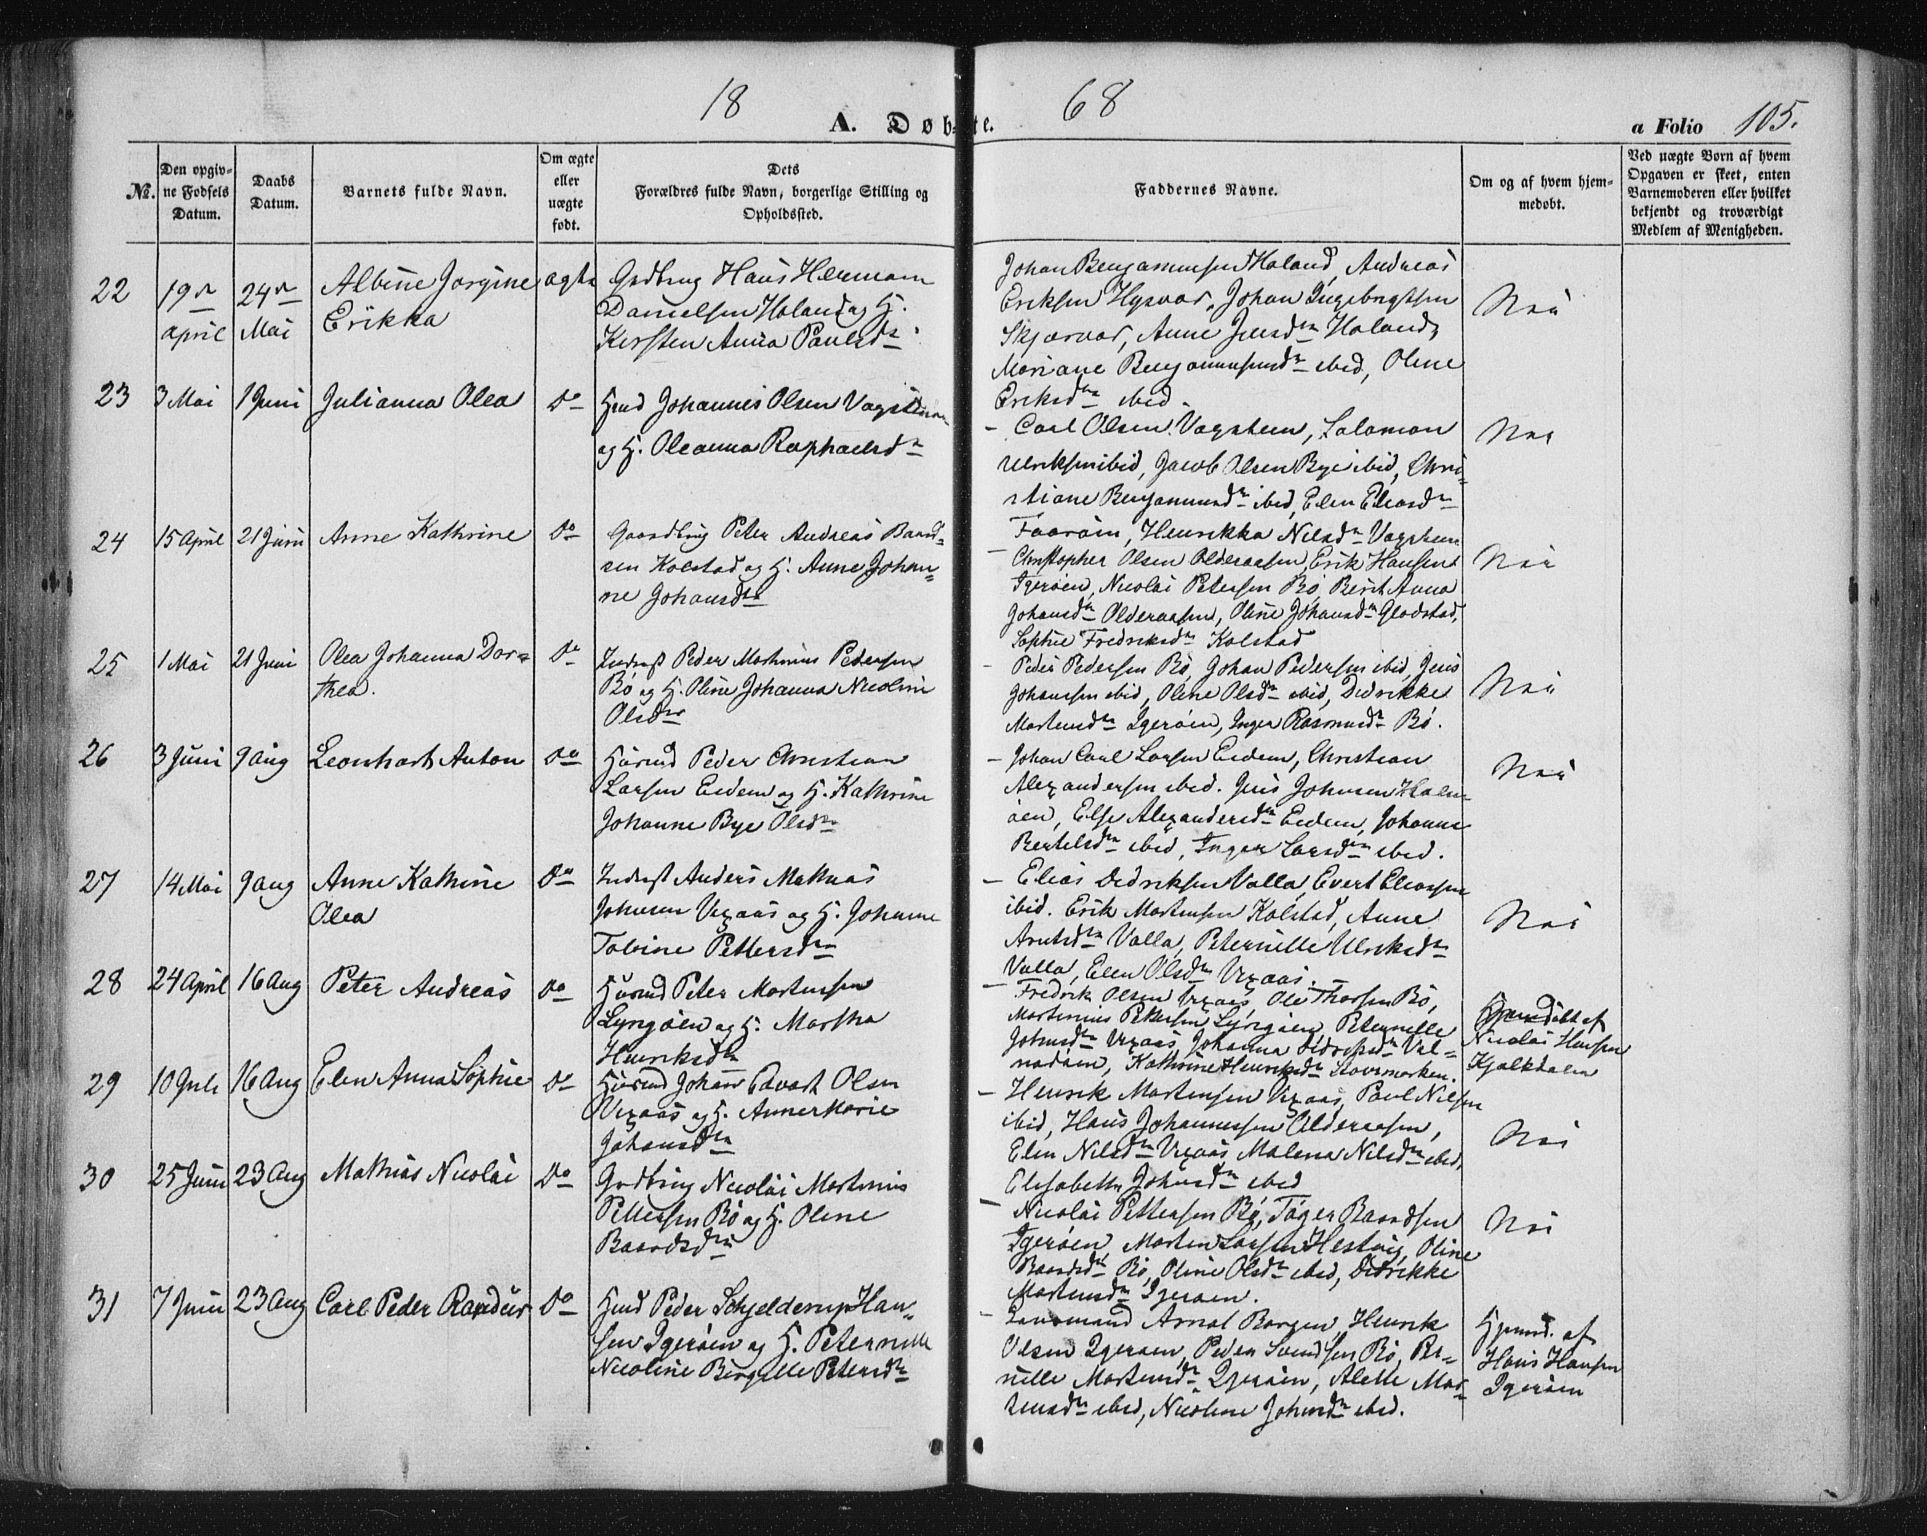 18 68
A. Døbte. a Folio 105.
No. Den opgivne Fødsels Datum. Daabs Datum. Barnets fulde Navn. Om ægte eller uægte født. Dets Forældres fulde Navn, borgerlige Stilling og Opholdssted. Faddernes Navne. Om og af hvem hjemmedøbt. Ved uægte Børn af hvem Opgaven er skeet, enten Barnemoderen eller hvilket bekjendt og troværdigt Medlem af Menigheden.
22 19de april 24de Mai Albine Jorgine Erikka ægte
Grdbrug Hans Herman
Danielsen Holand og H.
Kirsten Anna Paulsdtr
Johan Benjaminsen Holand, Andreas
Eriksen Hysvær, Johan Ingebrigtsen
Skjærvær, Anne Jensdtr Holand,
Mariane Benjaminsdtr ibid, Oline
Eriksdtr ibid.
Nei
23 3 Mai 1 Juni Julianna Olea Do
Hmd Johannes Olsen Vagsteen
og H. Oleanna Raphaelsdtr
- Carl Olsen Vagsteen, Salomon
Ulriksen ibid, Jacob Olsen Bye ibid, Chri-
stiane Benjaminsdtr ibid, Elen Eliasdtr
Faarøin, Henrikka Nilsdtr Vagsteen
Nei
24 15 April 21 Juni Anne Kathrine Do
Gaardbrug Peter Andreas Baard-
sen Kolstad og H. Anne Johan-
ne Johansdtr
- Christopher Olsen Olderaasen, Erik Hansen
Igerøen, Nicolai Petersen Bø, Berit Anna
Johansdtr Olderaasen, Oline Johansdtr Gladstad,
Sophie Fredriksdtr Kolstad
Nei
25 1 Mai 21 Juni Olea Johanna Dor-
thea. Do
Inderst Peder Martinius Pedersen
Bø og H. Oline Johanna Nicoline
Olsdtr
- Peder Pedersen Bø, Johan Pedersen ibid, Jens
Johansen ibid, Oline Olsdtr ibid, Didrikke
Mortensdtr Igerøen, Inger Rasmusdtr Bø.
Nei
26 3 Juni 9 Aug Leonhart Anton Do
Huusmd Peder Christian
Larsen Eidem og H. Kathrine
Johanne Bye Olsdtr
- Johan Carl Larsen Eidem, Christian
Alexandersen ibid. Jens Johnsen Halm-
øen, Else Alexandersdtr Eidem, Johanne
Bertelsdtr ibid, Inger Larsdtr ibid.
Nei
27 14 Mai 9 Aug Anne Kathrine
Olea Do
Inderst Anders Mathias
Johnsen Vexaas og H. Johanne
Tobine Pettersdtr
- Elias Didriksen Valla, Evert Eliassen
ibid. Erik Mortensen Kolstad, Anne
Arntsdtr Valla, Peternille Ulriksdtr
Valla, Elen Olsdtr Vexaas.
Nei
28 24 April 16 Aug Peter Andreas Do
Huusmd Peter Mortensen
Lyngøen og H. Martha
Henriksdtr
- Fredrik Olsen Vexaas, Ole Thorsen Bø,
Martinius Pettersen Lyngøen, Peternille
Johnsdtr Vexaas, Johanna Didriksdtr Val-
nadøen, Kathrine Henriksdtr Stavemarken.
Hjemdøbt af
Nicolai Hansen
Kjelkdalen
29 10 Juli 16 Aug Elen Anna Sophie Do
Huusmd Johan Edvart Olsen
Vexaas og H. Anne Marie
Johansdtr
- Henrik Mortensen Vexaas, Paul Nilsen
ibid, Hans Johannessen Olderaasen,
Elen Nilsdtr Vexaas, Malena Nilsdtr ibid,
Elisabeth Johnsdtr ibid
Nei
30 25 Juni 23 Aug Mathias Nicolai Do
Grdbrug Nicolai Martinius
Pettersen Bø og H. Oline
Baardsdtr
- Nicolai Pettersen Bø, Tøger Baardsen
Igerøen, Morten Larsen Hestvig, Oline
Baardsdtr Bø, Oline Olsdtr ibid, Didrikke
Mortensdtr Igerøen.
Nei
31 7 Juni 23 Aug Carl Peder Randur Do
Hmd Peder Schjelderup Han-
sen Igerøen og H. Peternille
Nicoline Birgitte Petersdtr
- Lensmand Arnot Borgen, Henrik
Olsen Igerøen, Peder Svendsen Bø, Per-
nille Mortensdtr Igerøen, Alette Mor-
tensdtr ibid, Nicoline Johnsdtr ibid.
Hjemd. af
Hans Hansen
Igerøen